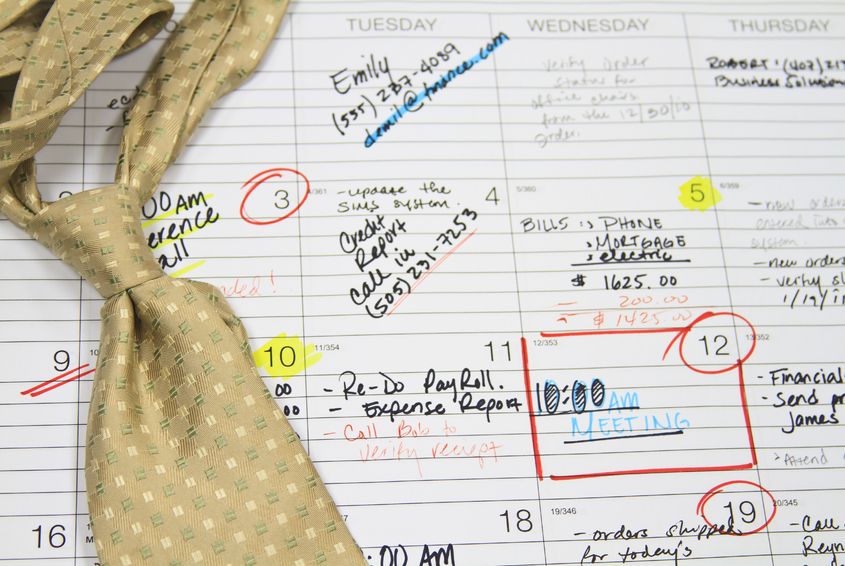 TUESDAY
WEDNESDAY
THURSDAY
Emily
demil@finance.com
verify order
status for
office chairs
from the 12/30/10
order.
Business Solution
00 AM
erence
all
3
4/361
- update the
SIMS system.
Credit
Report
Call in
(505) 231-7253
4
5/360
BILLS : PHONE
MORTGAGE
electric
$ 1625.00
- 200.00
= $ 1425.00
5
6/359
- new orders
entered into
system.
- new orders
- verify
9
10
00
00
11/354
- Re-Do PayRoll.
- Expense Report
- Call Bob to
verify reciept
11
12/353
10:00 AM
MEETING
12
13/352
- Financial
- Send
James
Attend
16
:00 AM
18
19/346
- orders shipped
for today's
19
20/345
- Call
Reyn